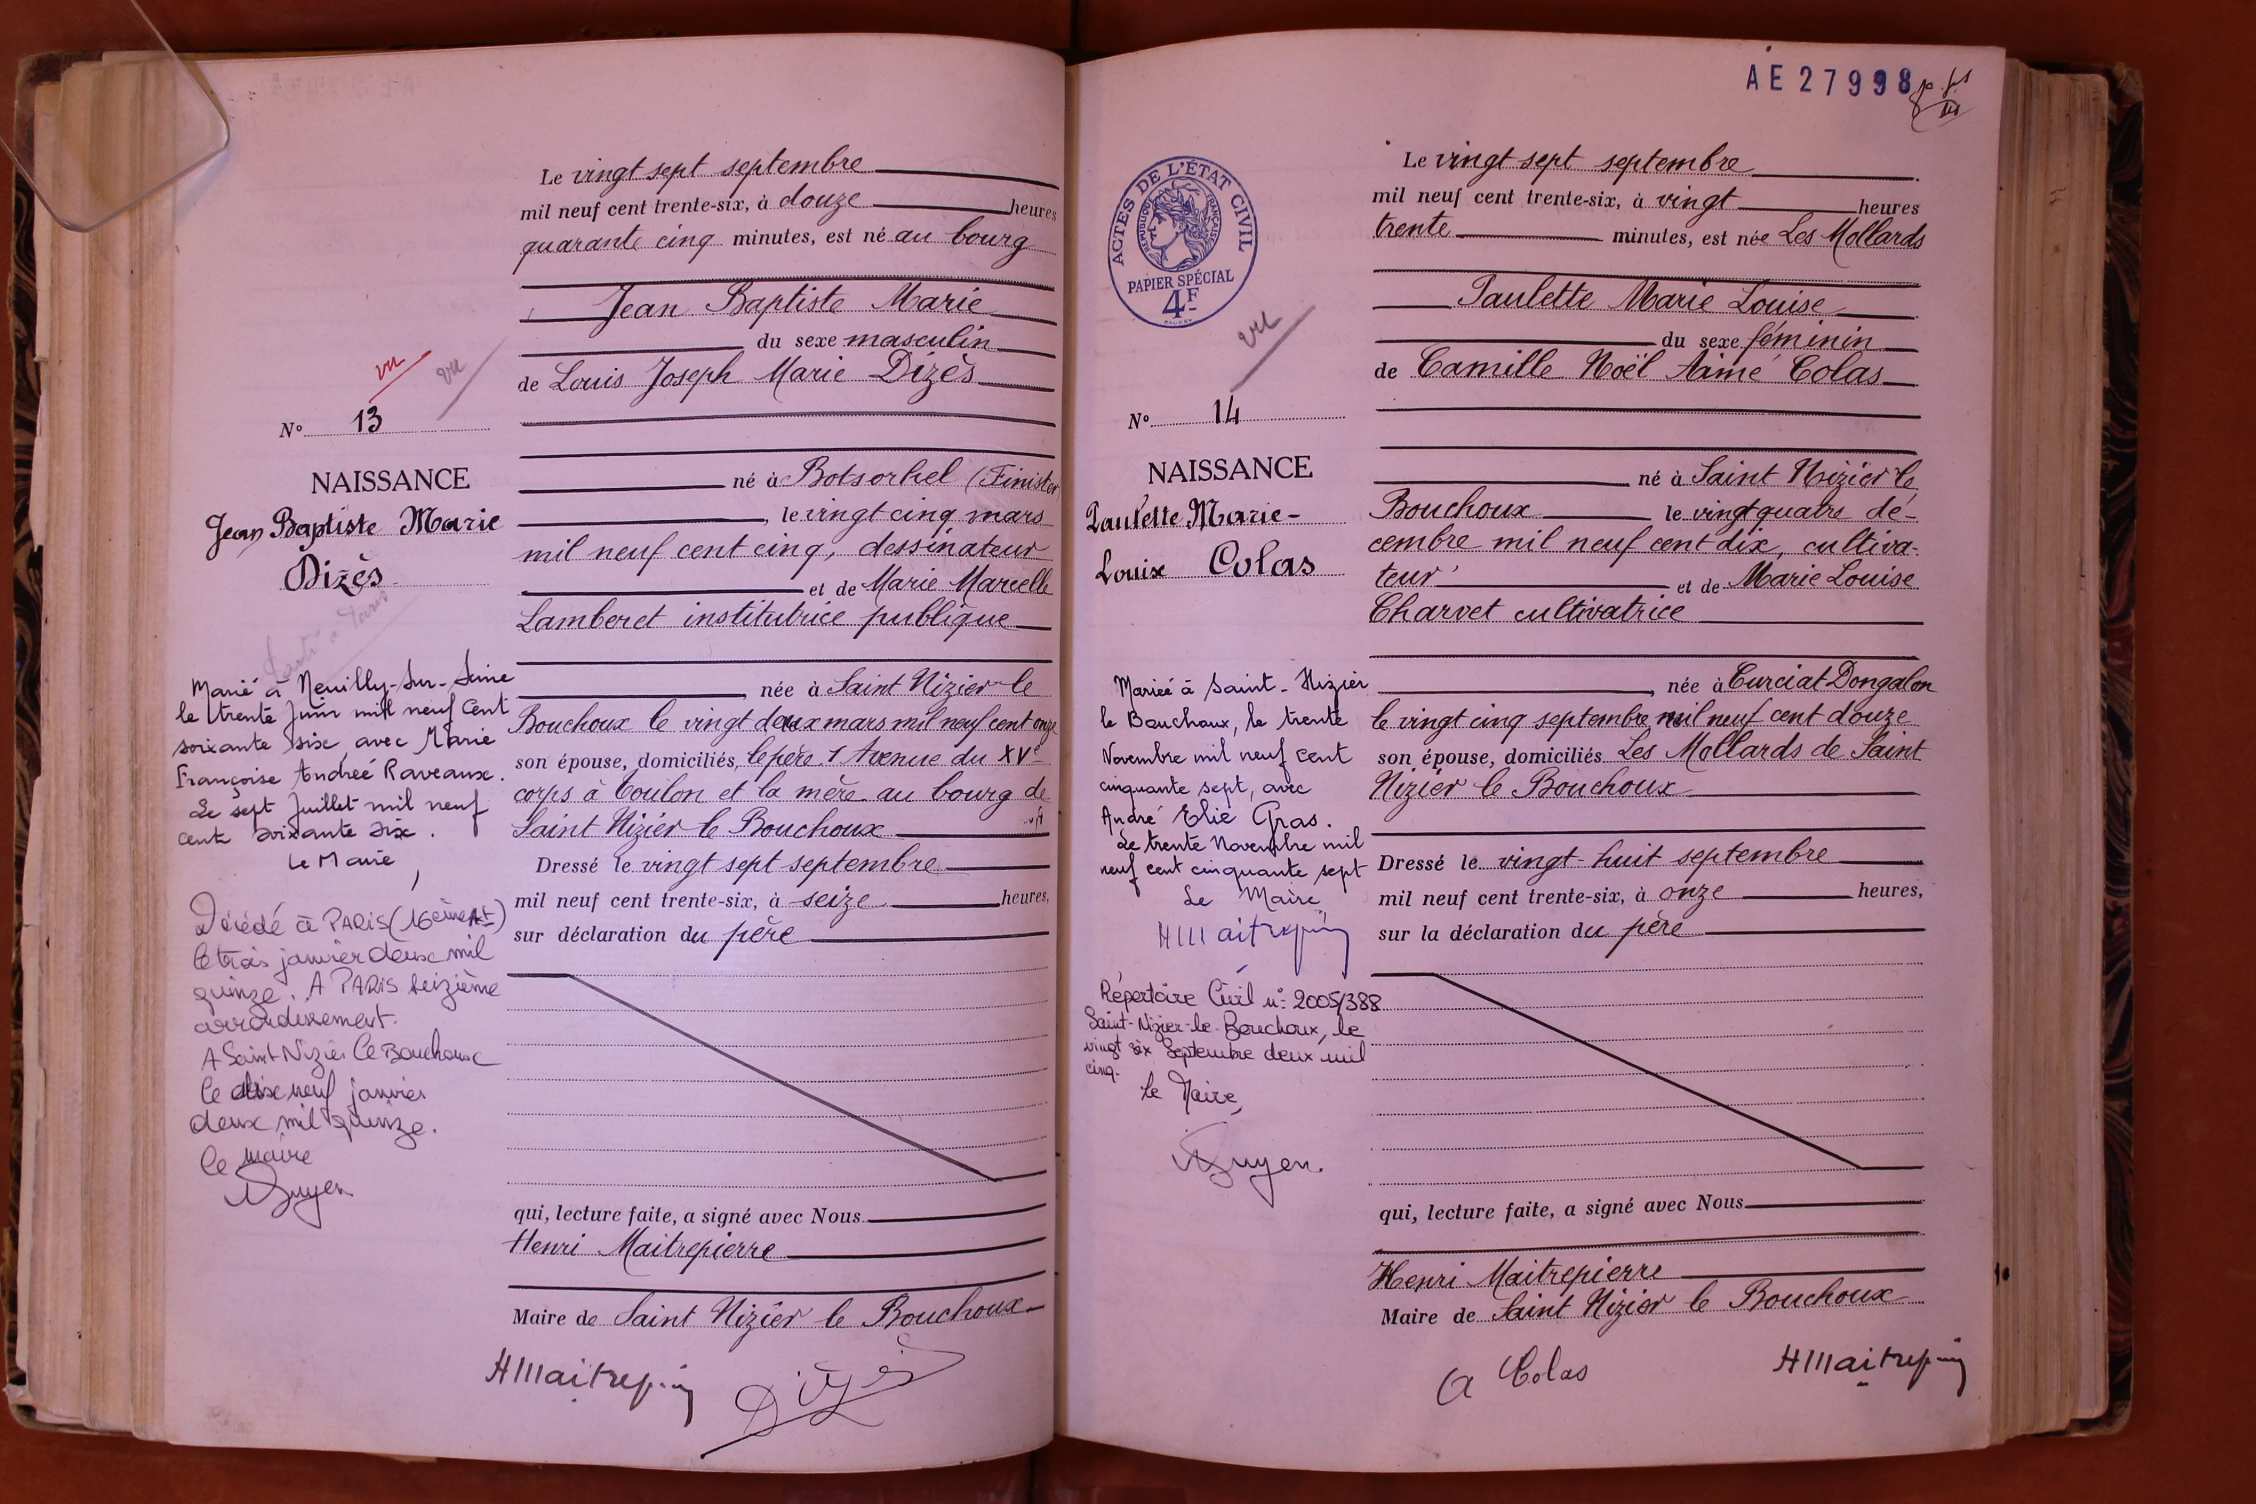 Le vingt sept septembre
mil neuf cent trente-six, à douze heures
quarante cinq minutes, est né au bourg
Jean Baptiste Marie
du sexe masculin
de Louis Joseph Marie Dizès
né à Botsorhel (Finister
, le vingt cinq mars
mil neuf cent cinq, dessinateur
et de Marie Marcelle
Lamberet institutrice publique
née à Saint Nizier le
Bouchoux le vingt deux mars mil neuf cent onze
son épouse, domiciliés, le père 1 Avenue du XVe
corps à Toulon et la mère au bourg de
Saint Nizier le Bouchoux
Dressé le vingt sept septembre
mil neuf cent trente-six, à seize heures,
sur déclaration du père
qui, lecture faite, a signé avec Nous
Henri Maitrepierre
Maire de Saint Nizier le Bouchoux
HMaitrep
Dizès
vu
vu
N° 13
NAISSANCE
Jean Baptiste Marie
Dizès
Marié à Neuilly-Sur-Seine
le trente Juin mil neuf cent
soixante six avec Marie
Françoise Andreé Raveaux.
Le sept Juillet mil neuf
cent soixante six.
Le Maire,
Décédé à PARIS (16ème At)
le trois janvier deux mil
quinze. A PARIS seizième
arrondissement.
A Saint Nizier le Bouchoux
le dix neuf janvier
deux mil quinze.
le maire
AE27998
ACTES DE L'ÉTAT CIVIL
RÉPUBLIQUE FRANÇAISE
PAPIER SPÉCIAL
4F
vu
N° 14
NAISSANCE
Paulette Marie-
Louise Colas
Mariée à Saint-Nizier
le Bouchoux, le trente
Novembre mil neuf cent
cinquante sept, avec
André Elie Gras.
Le trente Novembre mil
neuf cent cinquante sept
Le Maire,
HMaitrep
Répertoire Civil n° 2005/388
Saint-Nizier-le-Bouchoux, le
vingt six Septembre deux mil
cinq.
le Maire,
Le vingt sept septembre
mil neuf cent trente-six, à vingt heures
trente minutes, est née Les Mollards
Paulette Marie Louise
du sexe féminin
de Camille Noël Aimé Colas
né à Saint Nizier le
Bouchoux le vingt quatre dé-
cembre mil neuf cent dix, cultiva-
teur et de Marie Louise
Charvet cultivatrice
, née à Curciat Dongalon
le vingt cinq septembre mil neuf cent douze
son épouse, domiciliés Les Mollards de Saint
Nizier le Bouchoux
Dressé le vingt-huit septembre
mil neuf cent trente-six, à onze heures,
sur la déclaration du père
qui, lecture faite, a signé avec Nous
Henri Maitrepierre
Maire de Saint Nizier le Bouchoux
Colas
HMaitrep